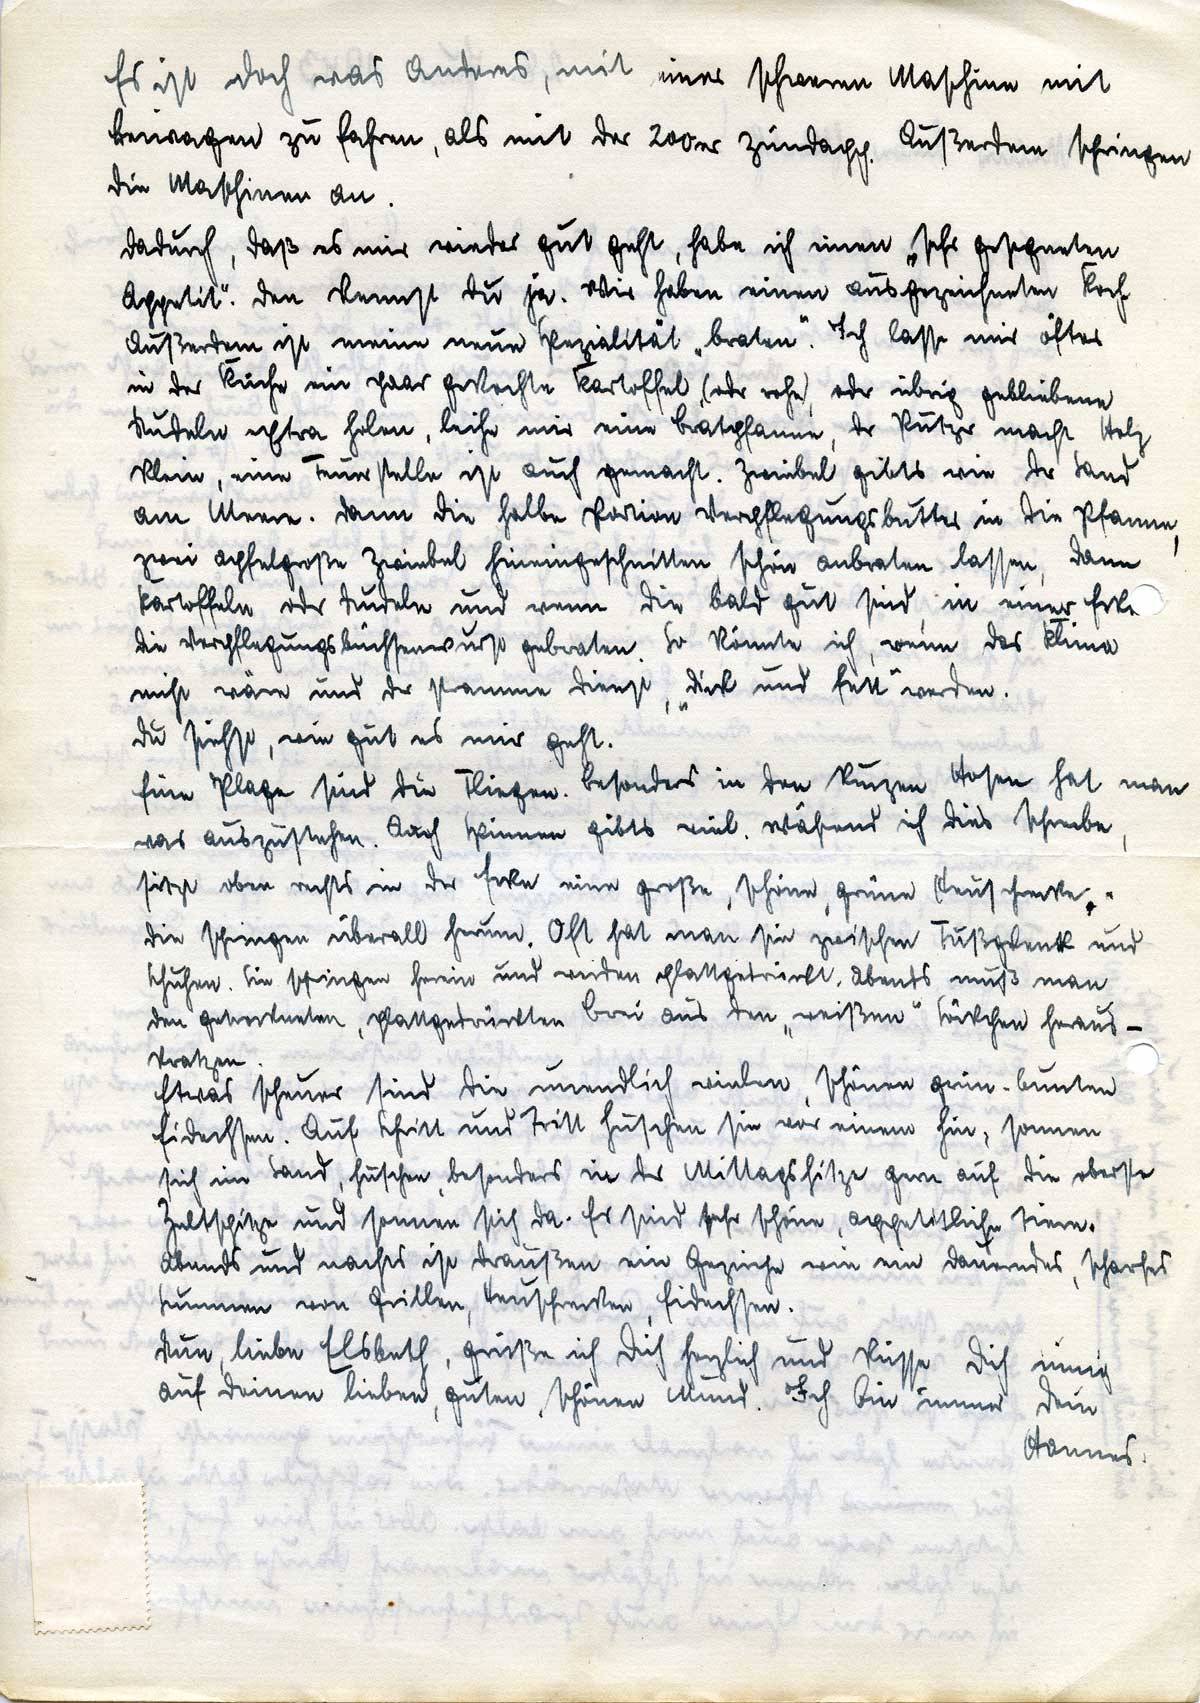 Es ist doch was Anderes, mit einer schweren Maschine mit
Beiwagen zu fahren, als mit der 200er Zündapp. Außerdem springen
die Maschinen an.
Dadurch, daß es mir wieder gut geht, habe ich einen „sehr gesegneten
Appetit". Den kennst Du ja. Wir haben einen ausgezeichneten Koch.
Außerdem ist meine neue Spezialität „braten". Ich lasse mir öfter
in der Küche ein paar gekochte Kartoffel, (oder rohe), oder übrig gebliebene
Nudeln extra holen, leihe mir eine Bratpfanne, der Putzer macht Holz
klein, eine Feuerstelle ist auch gemacht. Zwiebel gibts wie der Sand
am Meere. Dann die halbe Portion Verpflegungsbutter in die Pfanne,
zwei apfelgroße Zwiebel hineingeschnitten schön anbraten lassen, dann
Kartoffeln oder Nudeln und wenn die bald gut sind, in einer Ecke
die Verpflegungsbüchsenwurst gebraten. So könnte ich, wenn das Klima
nicht wäre und der stramme Dienst, „dick und fett" werden.
Du siehst, wie gut es mir geht.
Eine Plage sind die Fliegen. Besonders in den kurzen Hosen hat man
was auszustehen. Auch Spinnen gibts viel. Während ich dies schreibe,
sitzt oben rechts in der Ecke eine große, schöne, grüne Heuschrecke.
Die springen überall herum. Oft hat man sie zwischen Fußgelenk und
Schuhen. Sie springen herein und werden plattgedrückt. Abends muß man
den getrockneten, plattgedrückten Brei aus den „weißen" Söckchen heraus-
kratzen.
Etwas scheuer sind die unendlich vielen, schönen grün-bunten
Eidechsen. Auf Schritt und Tritt huschen sie vor einem hin, sonnen
sich im Sand, huschen, besonders in der Mittagshitze gern auf die oberste
Zeltspitze und sonnen sich da. Es sind sehr schöne, appetitliche Tiere.
Abends und nachts ist draußen ein Gezirpe wie ein dauerndes, scharfes
Summen von Grillen, Heuschrecken, Eidechsen.
Nun, liebe Elsbeth, grüße ich Dich herzlich und küsse Dich innig
auf Deinen lieben, guten, schönen Mund. Ich bin immer Dein
Hannes.